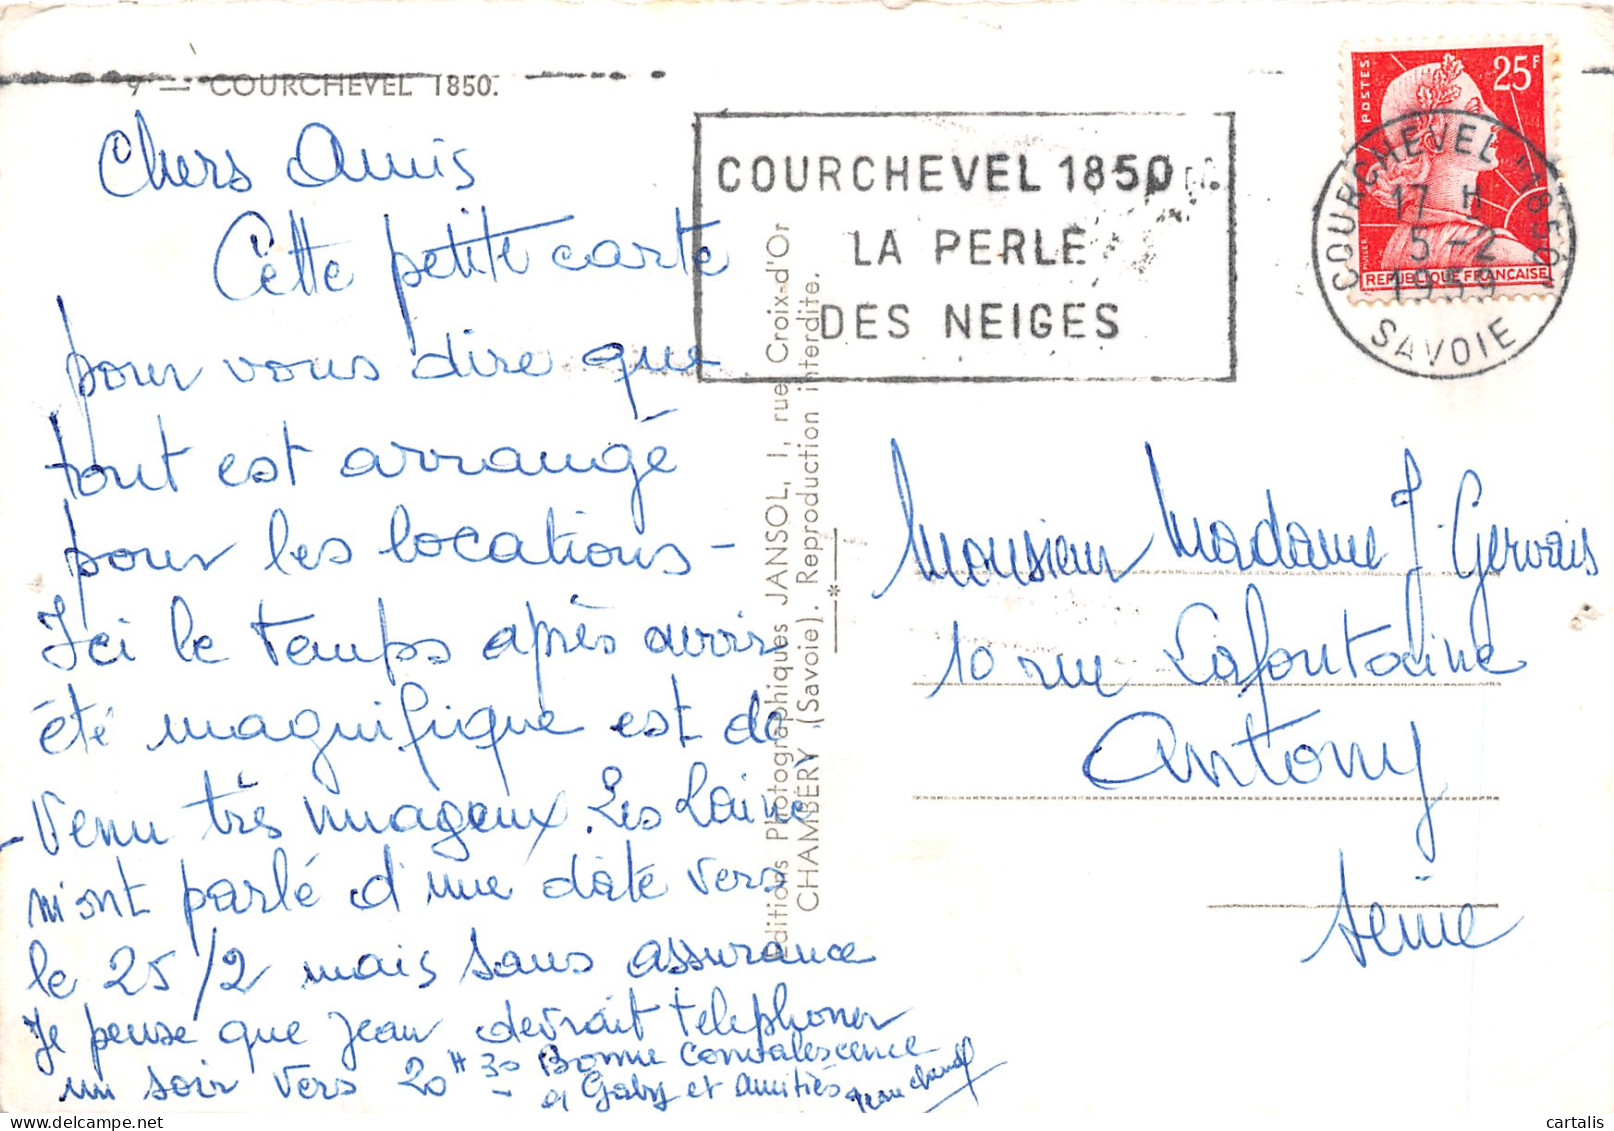 9 — COURCHEVEL 1850.
Chers Amis
Cette petite carte
pour vous dire que
tout est arrangé
pour les locations -
Ici le temps après avoir
été magnifique est de
venu très nuageux. Les Lainé
m'ont parlé d'une date vers
le 25/2 mais sans assurance
Je pense que Jean devrait telephoner
un soir vers 20 H 30
Bonne convalescence
à Gaby et amitiés
Editions Photographiques JANSOL, 1, rue Croix-d'Or
CHAMBÉRY (Savoie). Reproduction interdite.
COURCHEVEL 1850
LA PERLE
DES NEIGES
POSTES
25F
REPUBLIQUE FRANÇAISE
COURCHEVEL "1850"
17 H
5 - 2
1959
SAVOIE
Monsieur Madame J. Gervais
10 rue Lafontaine
Antony
Seine
cartalis